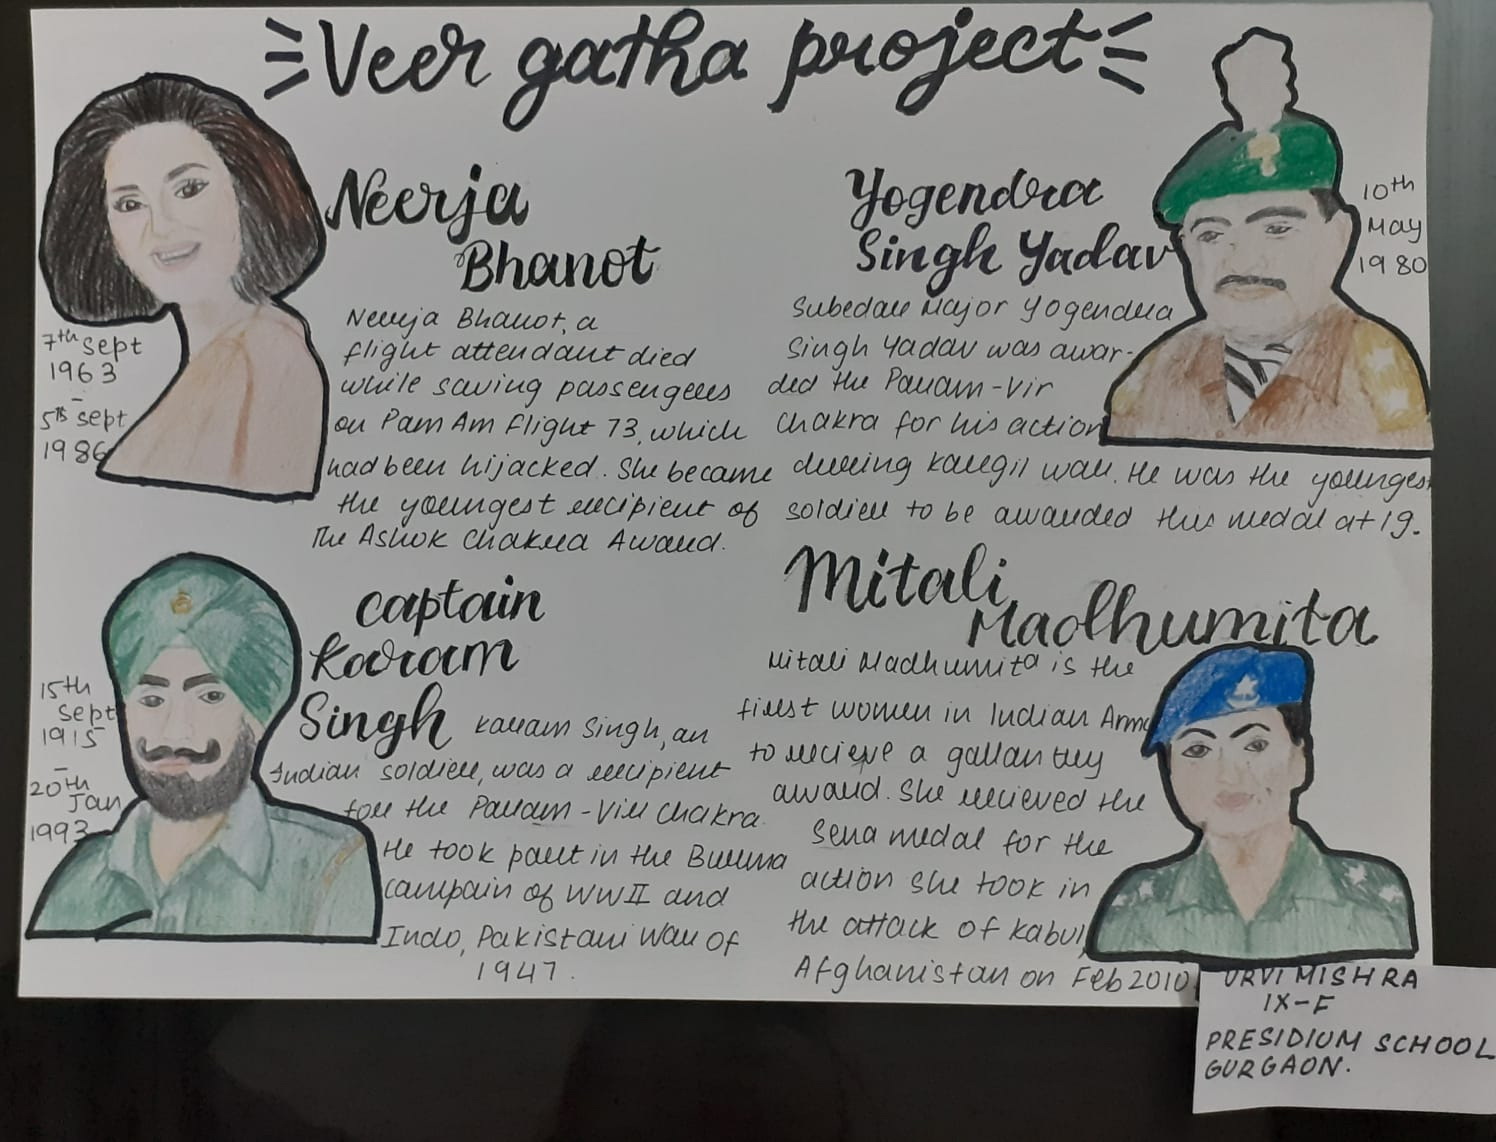 Veer gatha project
Neerja
Bhanot
7th sept
1963
-
5th sept
1986
Neerja Bhanot, a
flight attendant died
while saving passengers
on Pam Am flight 73, which
had been hijacked. She became
the youngest recipient of
The Ashok Chakra Award.
Yogendra
Singh Yadav
10th
May
1980
Subedar Major Yogendra
Singh Yadav was awar-
ded the Param-Vir
Chakra for his action
during kargil war. He was the youngest
soldier to be awarded this medal at 19.
Captain
Karam
Singh
15th
Sept
1915
-
20th
Jan
1993
Karam Singh, an
Indian soldier, was a recipient
for the Param-Vir Chakra.
He took part in the Burma
campain of WWII and
Indo, Pakistani War of
1947.
Mitali
Madhumita
Mitali Madhumita is the
first women in Indian Army
to recieve a gallantry
award. She recieved the
Sena medal for the
action she took in
the attack of Kabul,
Afghanistan on Feb 2010.
URVI MISHRA
IX-F
PRESIDIUM SCHOOL
GURGAON.